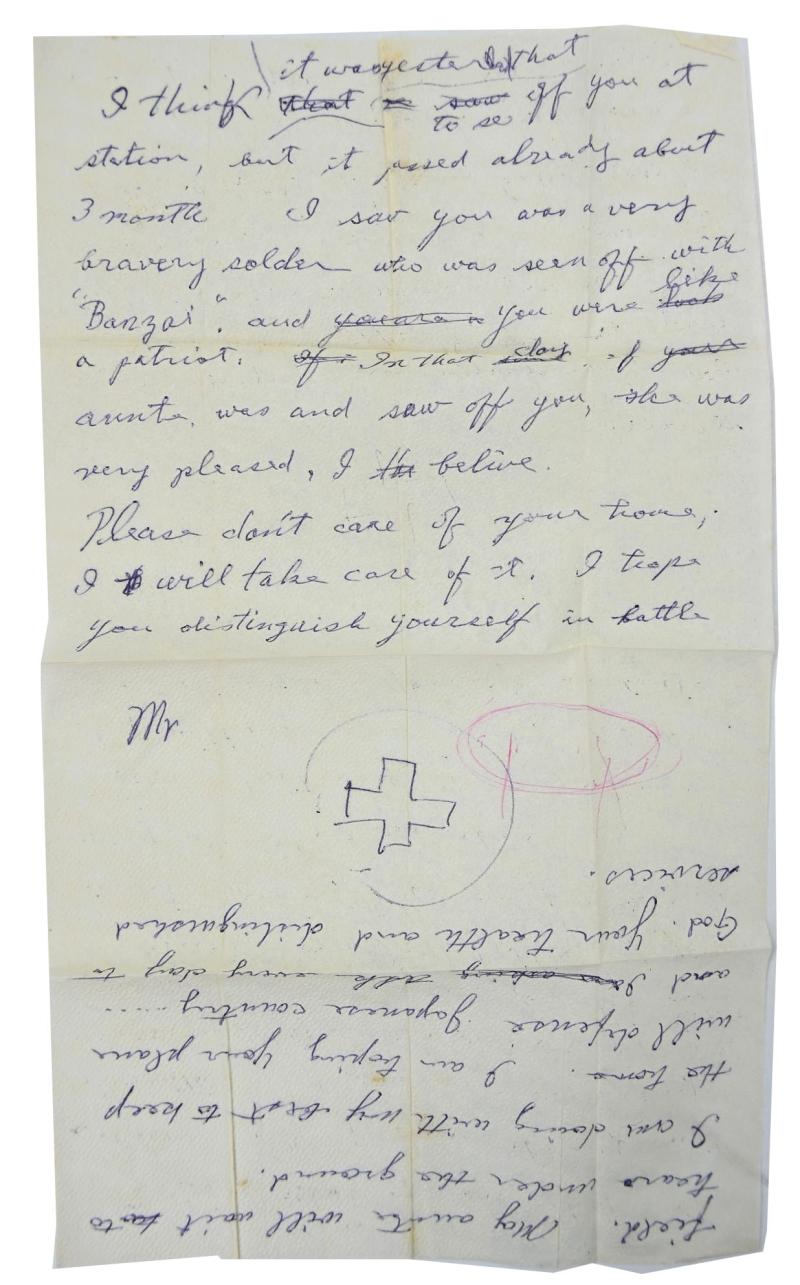 it was yesterday that
I think that saw off you at
to se
station, but it passed already about
3 month I saw you was a very
bravery solder who was seen off with
"Banzai". and you are you were look
like
a patriot. If In that day if your
aunte, was and saw off you, she was
very pleased, I th belive.
Please don't care of your home,
I will take care of it. I hope
you distinguish yourself in battle
Mr.
field. My aunte will wait to
hear under the ground.
I am doing with my best to keep
the home. I am hoping your plane
will defense Japanese country.....
and I am asking ask every day to
God. Your health and distinguished
services.